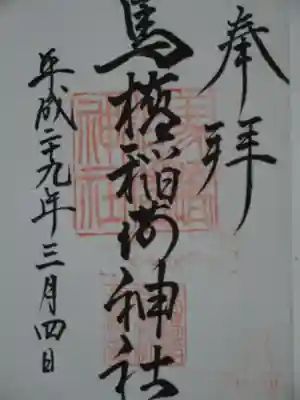 奉拝
馬橋稲荷神社
平成二十九年三月四日